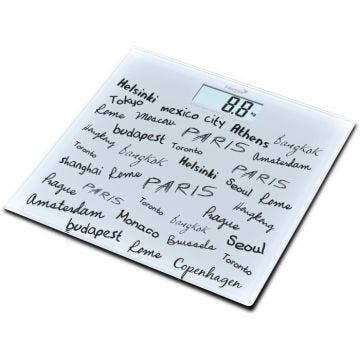 8.8
Helsinki mexico city Athens
Tokyo Bangkok
Rome Moscow PARIS Amsterdam
Hongkong Bangkok Toronto
budapest Helsinki PARIS
Toronto
shanghai PARIS Seoul Rome
Rome Toronto Prague Hongkong
Prague PARIS Bangkok Toronto
Amsterdam Monaco Brussels Seoul
Toronto
budapest Rome Copenhagen